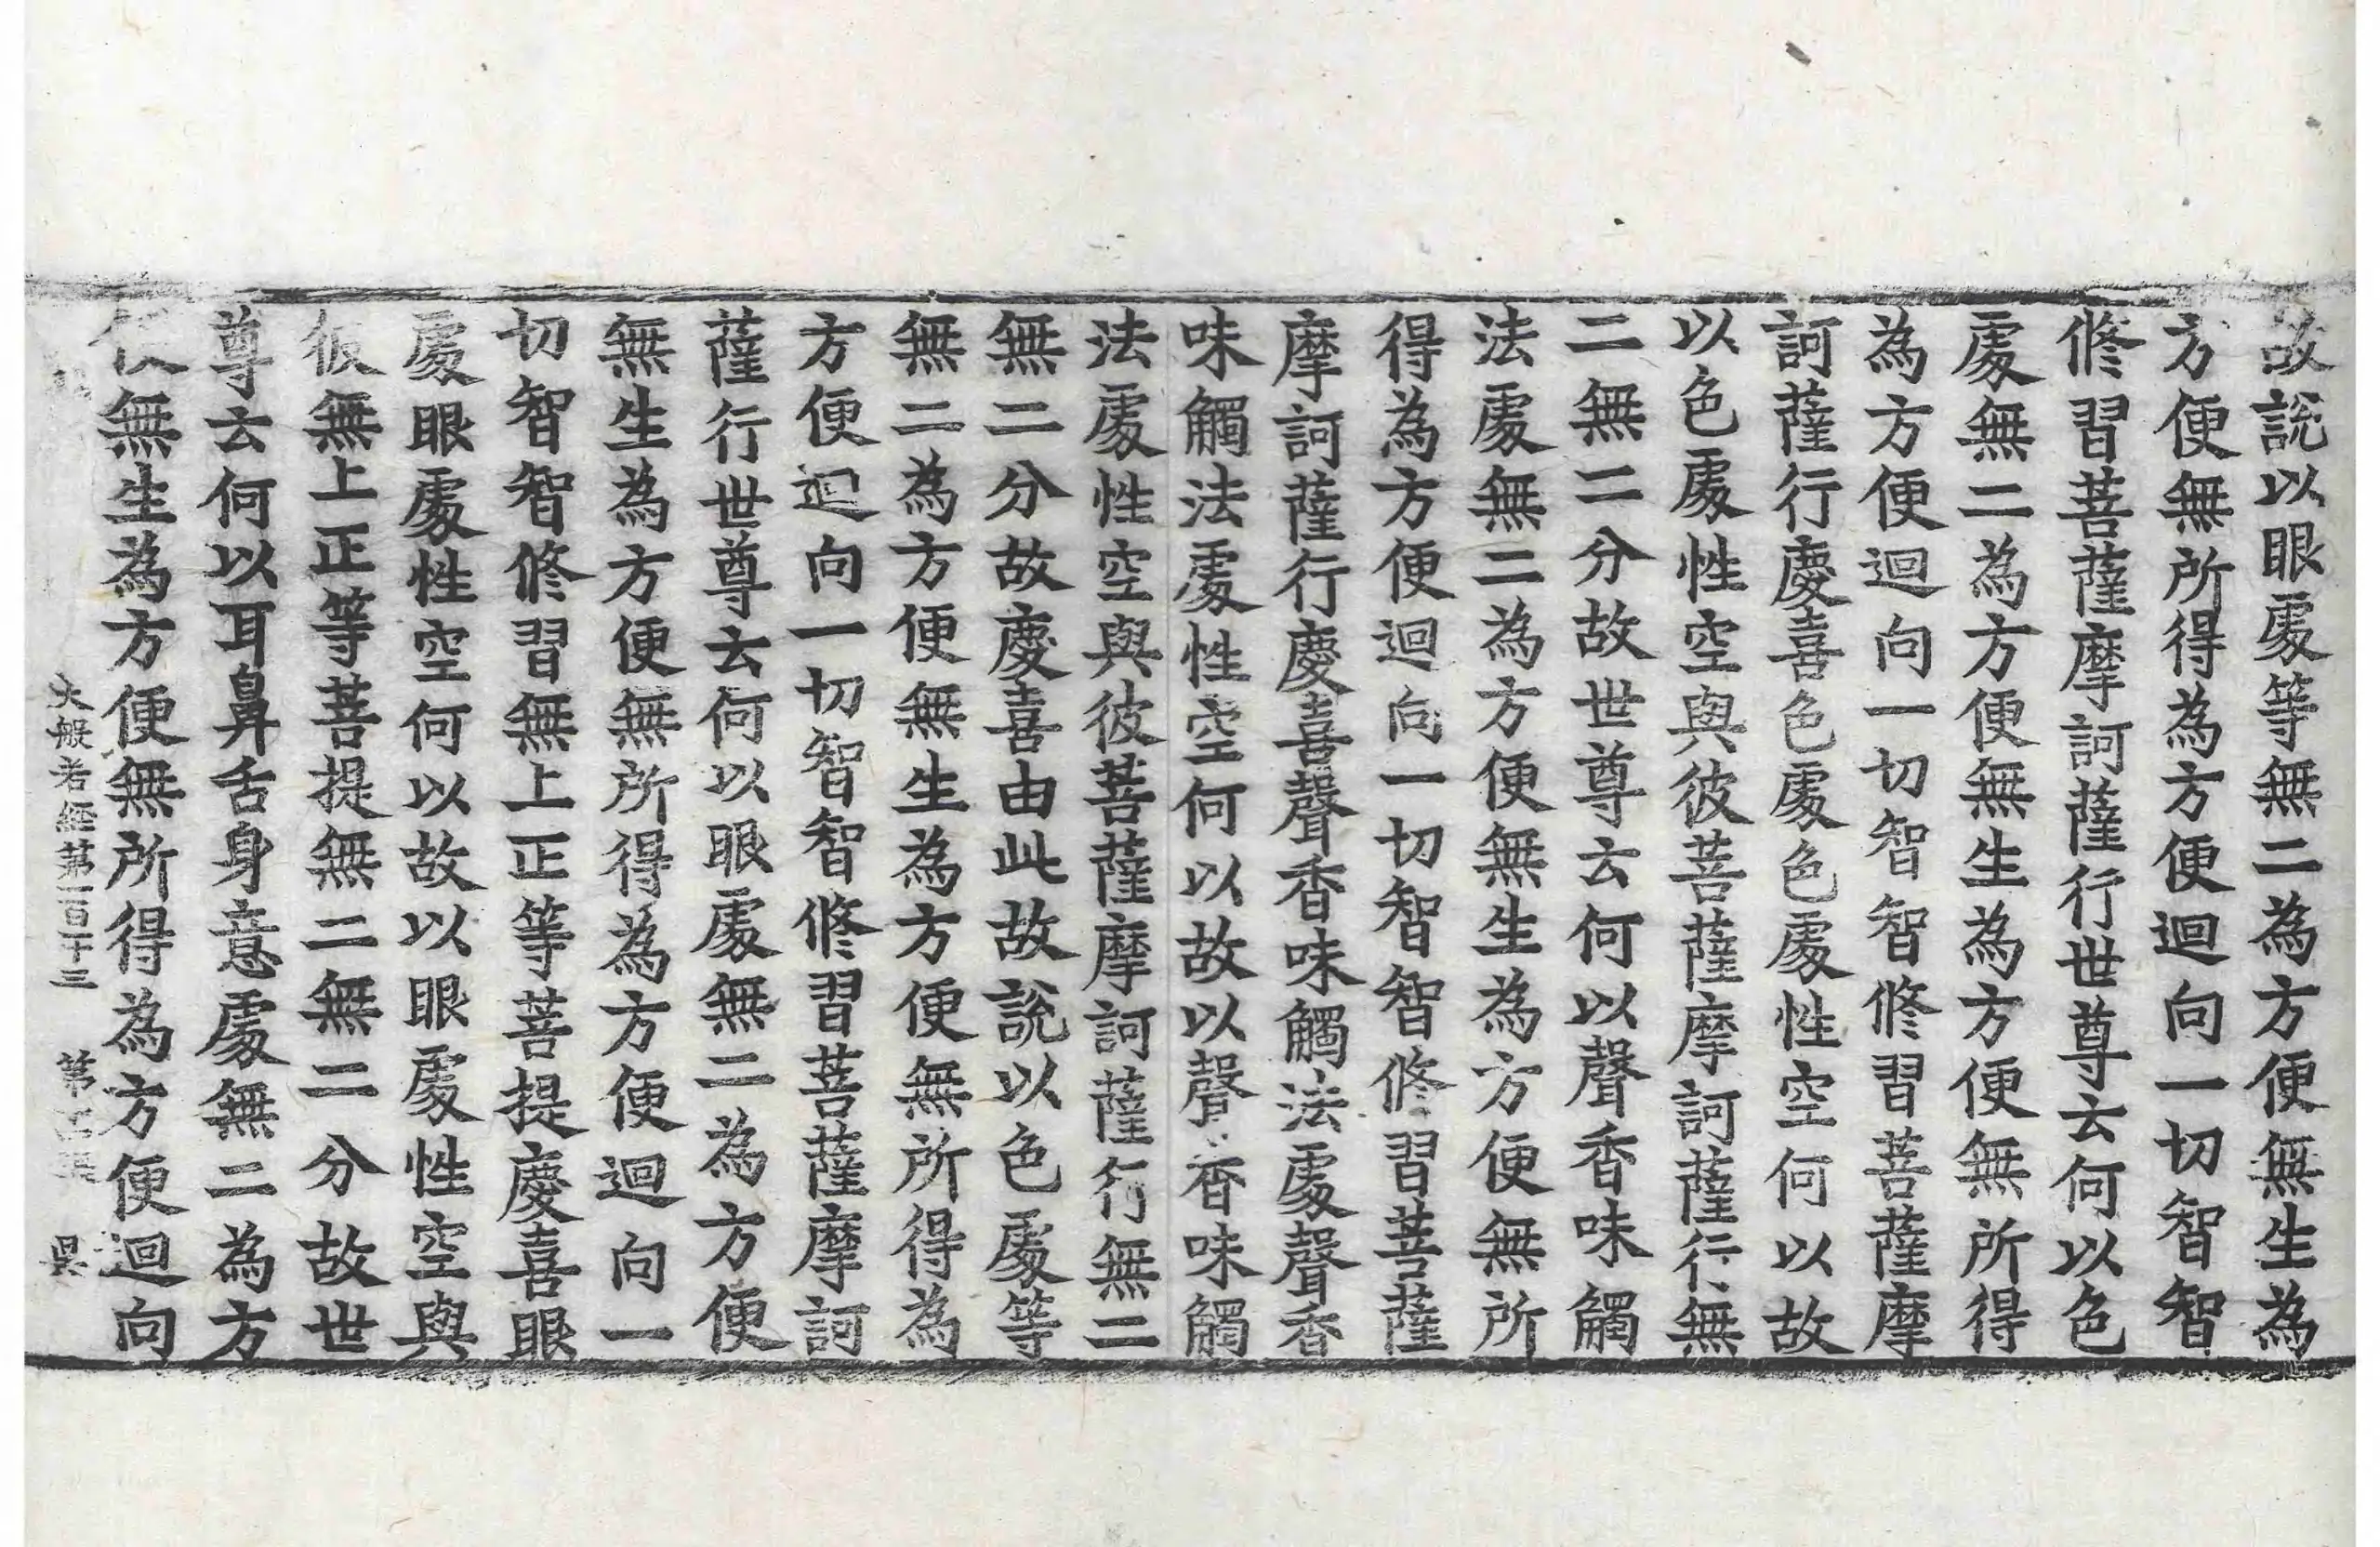 故說以眼處等無二為方便無生為
方便無所得為方便迴向一切智智
修習菩薩摩訶薩行世尊云何以色
處無二為方便無生為方便無所得
為方便迴向一切智智修習菩薩摩
訶薩行慶喜色處色處性空何以故
以色處性空與彼菩薩摩訶薩行無
二無二分故世尊云何以聲香味觸
法處無二為方便無生為方便無所
得為方便迴向一切智智修習菩薩
摩訶薩行慶喜聲香味觸法處聲香
味觸法處性空何以故以聲香味觸
法處性空與彼菩薩摩訶薩行無二
無二分故慶喜由此故說以色處等
無二為方便無生為方便無所得為
方便迴向一切智智修習菩薩摩訶
薩行世尊云何以眼處無二為方便
無生為方便無所得為方便迴向一
切智智修習無上正等菩提慶喜眼
處眼處性空何以故以眼處性空與
彼無上正等菩提無二無二分故世
尊云何以耳鼻舌身意處無二為方
便無生為方便無所得為方便迴向
大般若經第一百十三 第 張 昃